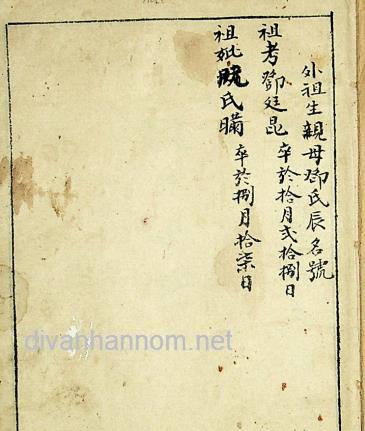 外祖生親母鄧氏辰名號
祖考鄧廷昆 卒於拾月弍拾捌日
祖妣阮氏𥊚 卒於捌月拾柒日
divanhannom.net